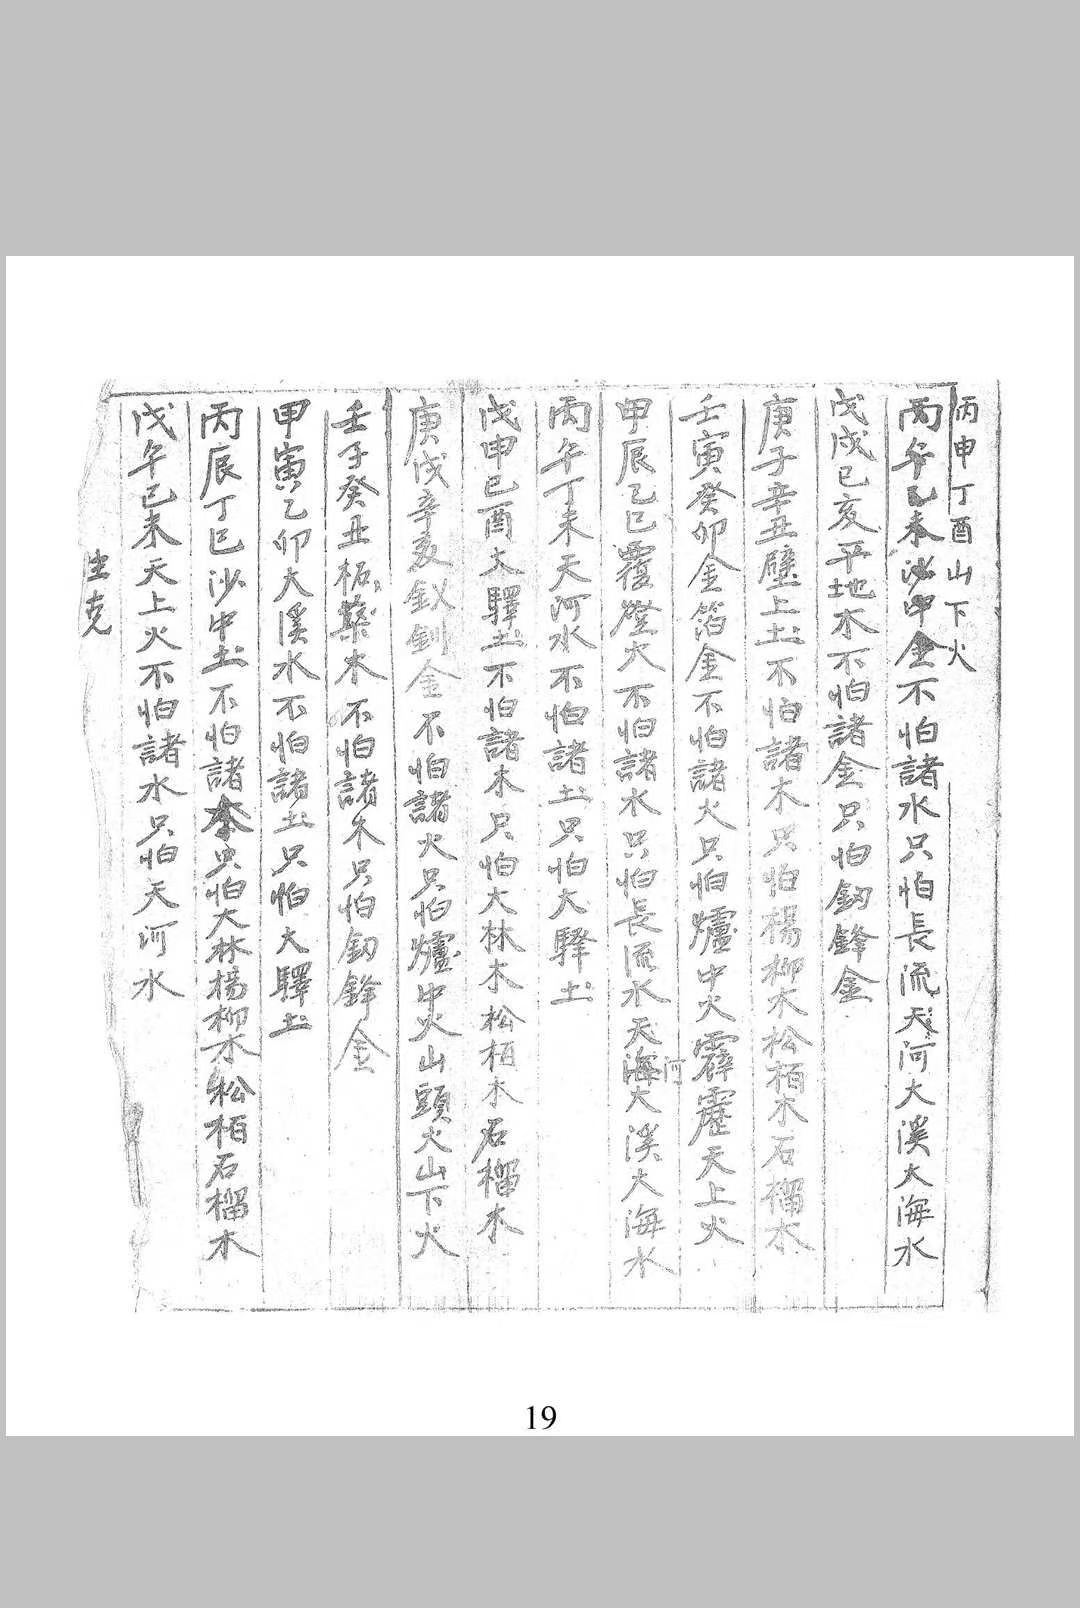 丙申丁酉山下火
丙午乙未沙中金不怕諸水只怕長流天河大溪大海水
戊戌己亥平地木不怕諸金只怕釰鋒金
庚子辛丑壁上土不怕諸木只怕楊柳木松栢木石榴木
壬寅癸卯金箔金不怕諸火只怕爐中火霹靂天上火
甲辰乙巳覆燈火不怕諸水只怕長流水天海河大溪大海水
丙午丁未天河水不怕諸土只怕大驛土
戊申己酉大驛土不怕諸木只怕大林木松栢木石榴木
庚戌辛亥釵釧金不怕諸火只怕爐中火山頭火山下火
壬子癸丑柘木不怕諸木只怕釰鋒金
甲寅乙卯大溪水不怕諸土只怕大驛土
丙辰丁巳沙中土不怕諸木只怕大林楊柳木松栢石榴木
戊午己未天上火不怕諸水只怕天河水
生克
19